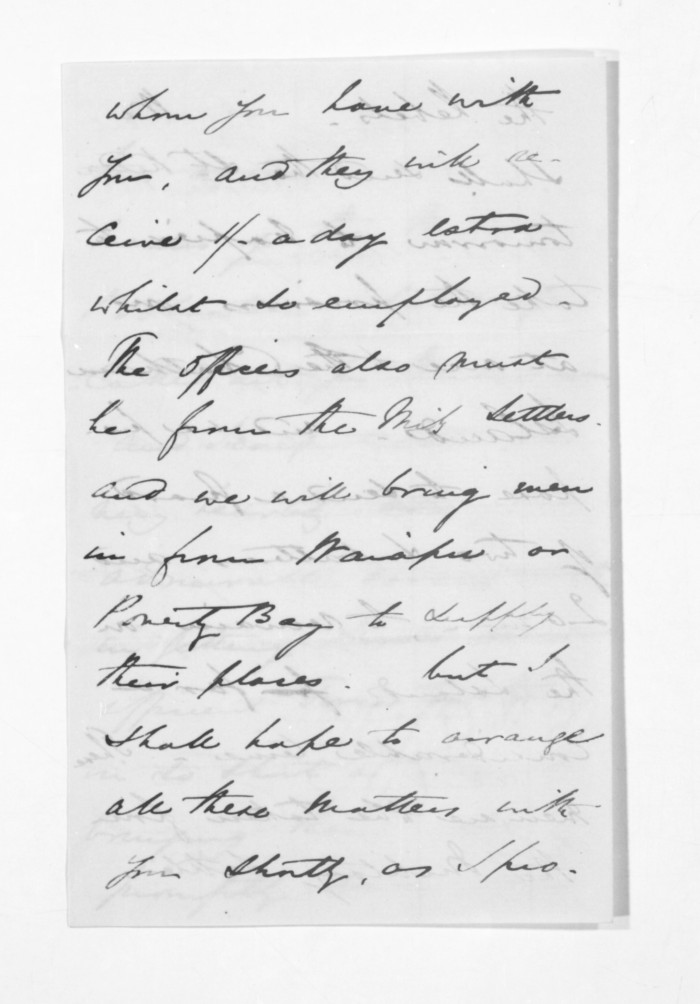 whom you have with
you, and they will re-
ceive 1/- a day extra
whilst so employed.
The officers also must
be from the Mily Settlers.
and we will bring men
in from Waiapu or
Poverty Bay to supply
their places. but I
shall hope to arrange
all these matters with
you shortly, as I pro-